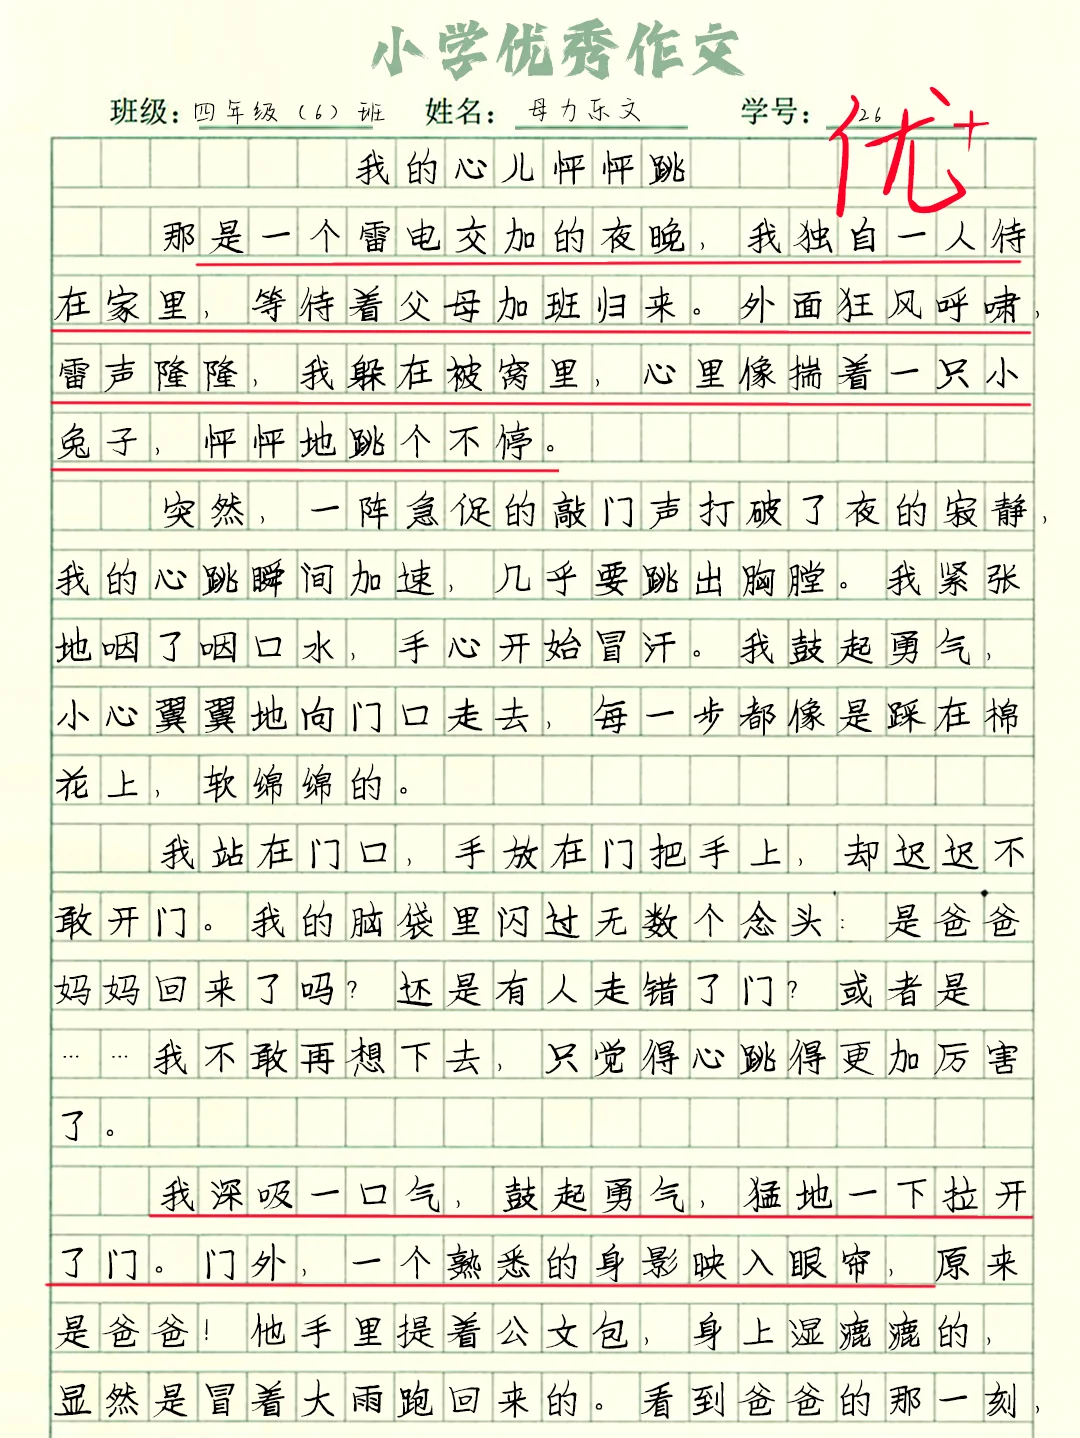 小学优秀作文
班级：四年级（6）班 姓名：母力乐文 学号：26
优+
我的心儿怦怦跳
那是一个雷电交加的夜晚，我独自一人待
在家里，等待着父母加班归来。外面狂风呼啸，
雷声隆隆，我躲在被窝里，心里像揣着一只小
兔子，怦怦地跳个不停。
突然，一阵急促的敲门声打破了夜的寂静，
我的心跳瞬间加速，几乎要跳出胸膛。我紧张
地咽了咽口水，手心开始冒汗。我鼓起勇气，
小心翼翼地向门口走去，每一步都像是踩在棉
花上，软绵绵的。
我站在门口，手放在门把手上，却迟迟不
敢开门。我的脑袋里闪过无数个念头：是爸爸
妈妈回来了吗？还是有人走错了门？或者是
……我不敢再想下去，只觉得心跳得更加厉害
了。
我深吸一口气，鼓起勇气，猛地一下拉开
了门。门外，一个熟悉的身影映入眼帘，原来
是爸爸！他手里提着公文包，身上湿漉漉的，
显然是冒着大雨跑回来的。看到爸爸的那一刻，